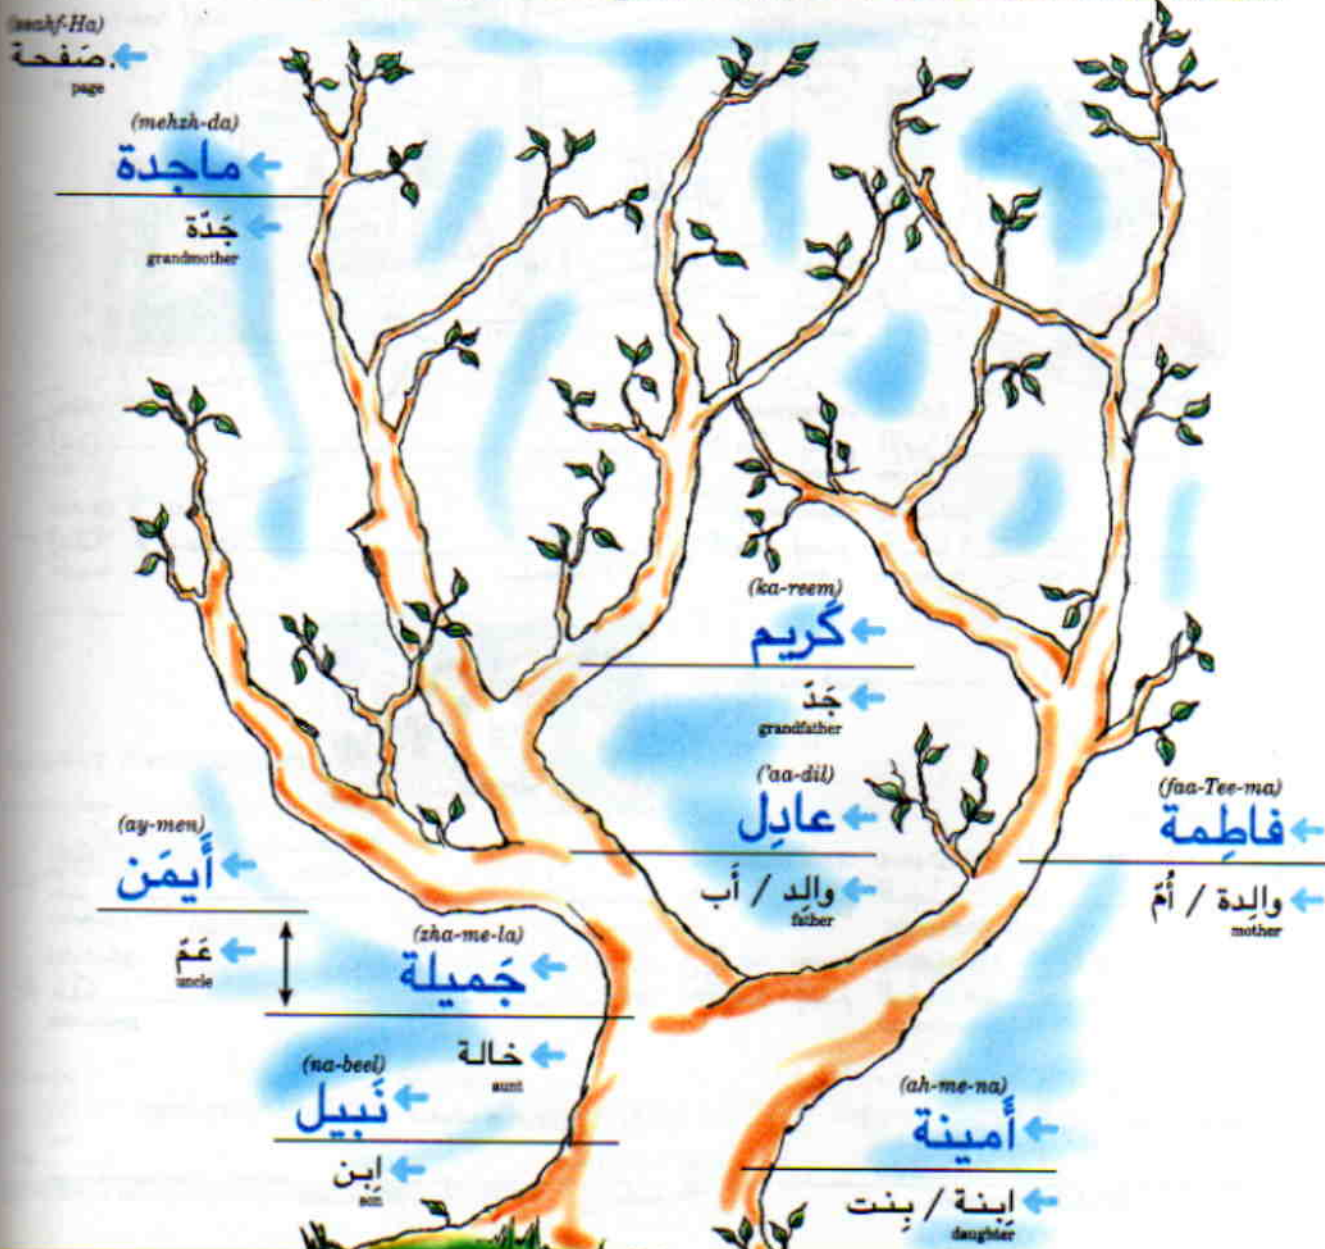 (saahf-Ha)
صَفحة.
page
(mehzh-da)
ماجدة
جَدّة
grandmother
(ka-reem)
كَريم
جَدّ
grandfather
('aa-dil)
عادِل
والِد / أَب
father
(faa-Tee-ma)
فاطِمة
والِدة / أُمّ
mother
(ay-men)
أَيمَن
عَمّ
uncle
(zha-me-la)
جَميلة
خالة
aunt
(na-beel)
نَبيل
اِبن
son
(ah-me-na)
أَمينة
اِبنة / بِنت
daughter